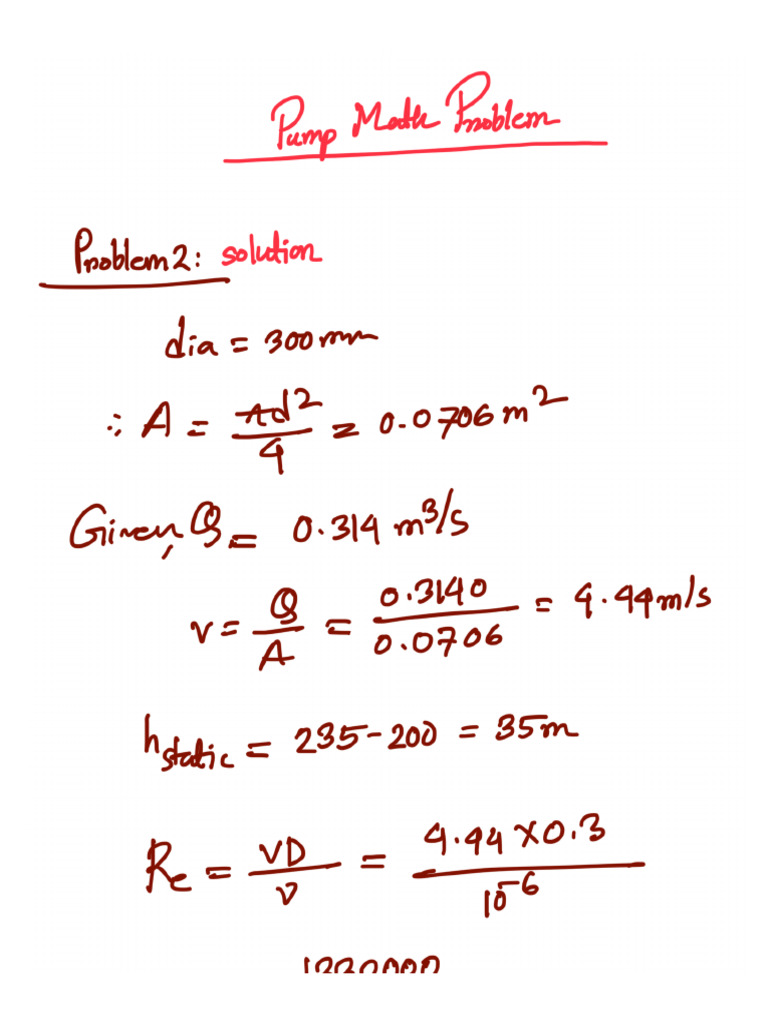 Pump Math Problem
Problem 2: solution
dia = 300 mm
∴ A = πd²/4 = 0.0706 m²
Given, Q = 0.314 m³/s
v = Q/A = 0.3140/0.0706 = 4.44 m/s
h_static = 235-200 = 35m
Re = VD/ν = 4.44 × 0.3/10⁻⁶